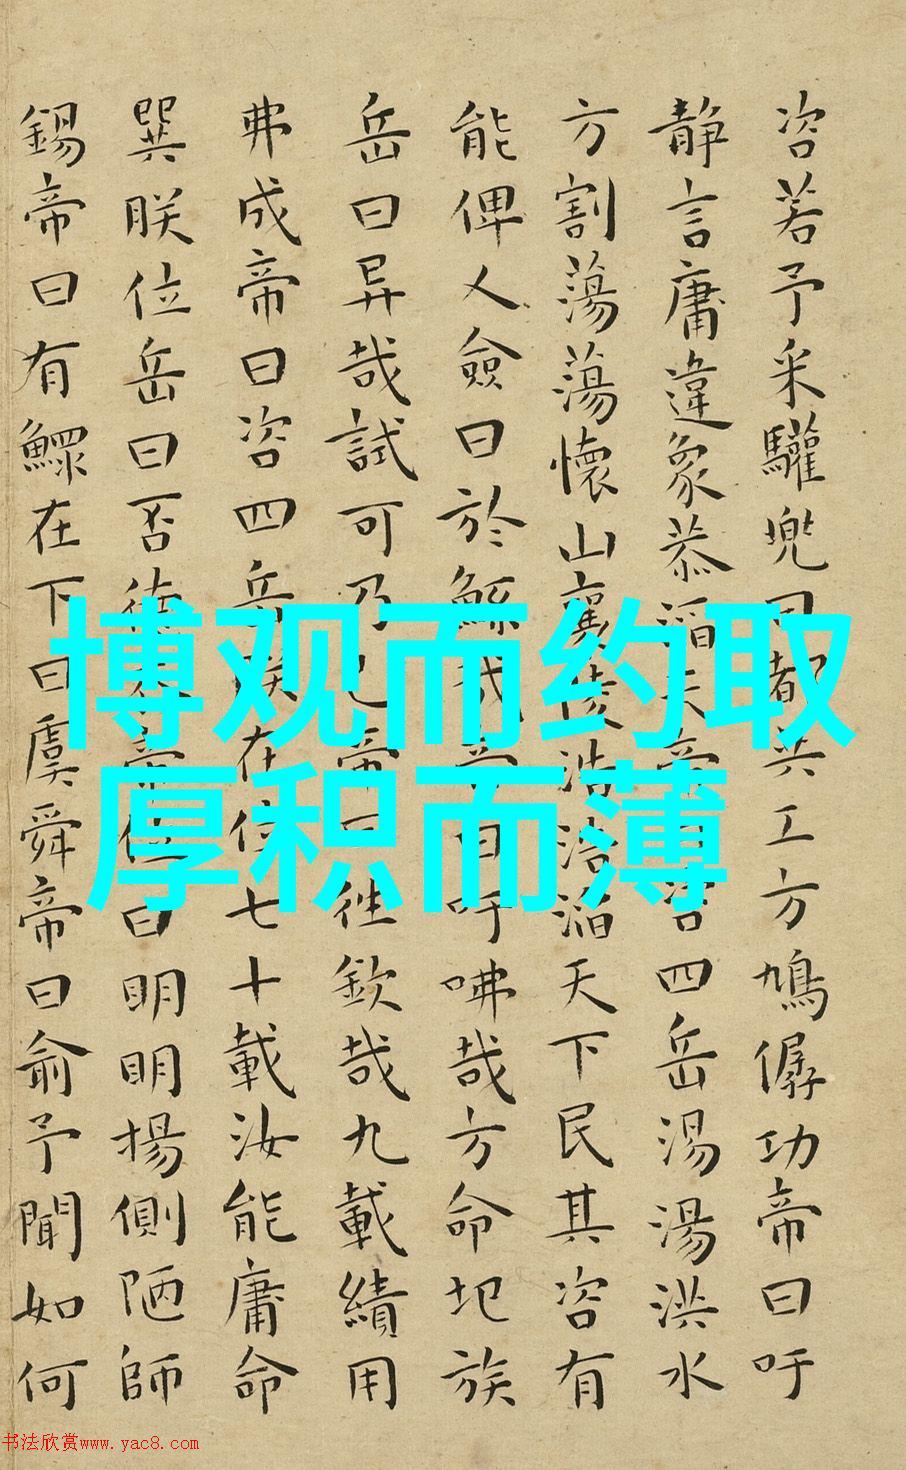 咨若予采驩兜曰都共工方鳩僝功帝曰吁
静言庸違象恭滔天帝曰咨四岳湯湯洪水
方割蕩蕩懷山襄陵浩浩滔天下民其咨有
能俾乂僉曰於鯀哉帝曰吁咈哉方命圮族
岳曰异哉試可乃已帝曰往欽哉九載績用
弗成帝曰咨四岳朕在位七十載汝能庸命
巽朕位岳曰否德忝帝位曰明明揚側陋師
錫帝曰有鰥在下曰虞舜帝曰俞予聞如何
博观而约取
厚积而薄
书法欣赏www.yac8.com